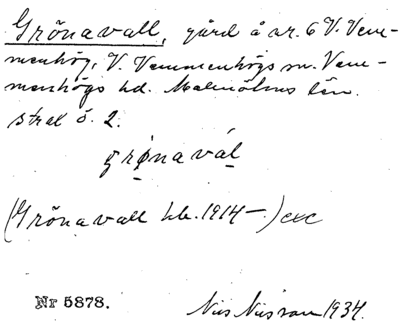 Grönavall, gård å nr. 6 V. Vem-
menhög, V. Vemmenhögs sn. Vem-
menhögs hd. Malmöhus län.
strax ö. 2.
grønavál
(Grönavall kb. 1914 – )
Nr 5878. Nils Nilsson 1934.